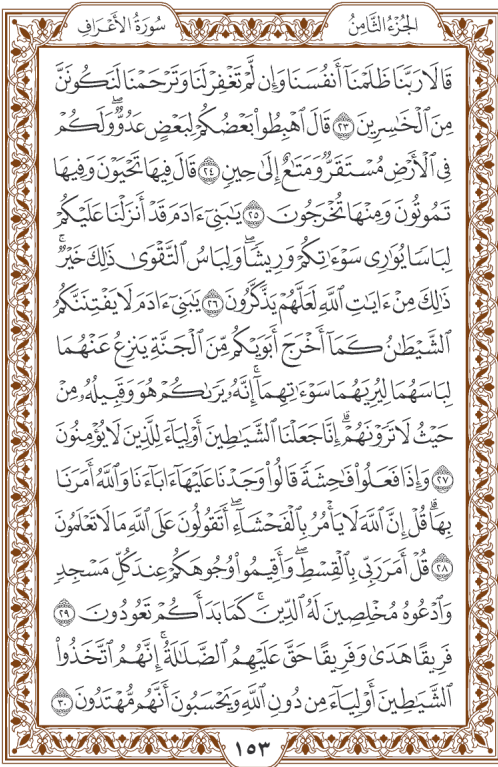 الجُزْءُ الثَّامِنُ
سُورَةُ الأَعْرَافِ
قَالَا رَبَّنَا ظَلَمْنَآ أَنفُسَنَا وَإِن لَّمْ تَغْفِرْ لَنَا وَتَرْحَمْنَا لَنَكُونَنَّ
مِنَ ٱلْخَٰسِرِينَ ٢٣ قَالَ ٱهْبِطُوا۟ بَعْضُكُمْ لِبَعْضٍ عَدُوٌّ ۖ وَلَكُمْ
فِى ٱلْأَرْضِ مُسْتَقَرٌّ وَمَتَٰعٌ إِلَىٰ حِينٍ ٢٤ قَالَ فِيهَا تَحْيَوْنَ وَفِيهَا
تَمُوتُونَ وَمِنْهَا تُخْرَجُونَ ٢٥ يَٰبَنِىٓ ءَادَمَ قَدْ أَنزَلْنَا عَلَيْكُمْ
لِبَاسًا يُوَٰرِى سَوْءَٰتِكُمْ وَرِيشًا ۖ وَلِبَاسُ ٱلتَّقْوَىٰ ذَٰلِكَ خَيْرٌ ۚ
ذَٰلِكَ مِنْ ءَايَٰتِ ٱللَّهِ لَعَلَّهُمْ يَذَّكَّرُونَ ٢٦ يَٰبَنِىٓ ءَادَمَ لَا يَفْتِنَنَّكُمُ
ٱلشَّيْطَٰنُ كَمَآ أَخْرَجَ أَبَوَيْكُم مِّنَ ٱلْجَنَّةِ يَنزِعُ عَنْهُمَا
لِبَاسَهُمَا لِيُرِيَهُمَا سَوْءَٰتِهِمَآ ۗ إِنَّهُۥ يَرَىٰكُمْ هُوَ وَقَبِيلُهُۥ مِنْ
حَيْثُ لَا تَرَوْنَهُمْ ۗ إِنَّا جَعَلْنَا ٱلشَّيَٰطِينَ أَوْلِيَآءَ لِلَّذِينَ لَا يُؤْمِنُونَ
٢٧ وَإِذَا فَعَلُوا۟ فَٰحِشَةً قَالُوا۟ وَجَدْنَا عَلَيْهَآ ءَابَآءَنَا وَٱللَّهُ أَمَرَنَا
بِهَا ۗ قُلْ إِنَّ ٱللَّهَ لَا يَأْمُرُ بِٱلْفَحْشَآءِ ۖ أَتَقُولُونَ عَلَى ٱللَّهِ مَا لَا تَعْلَمُونَ
٢٨ قُلْ أَمَرَ رَبِّى بِٱلْقِسْطِ ۖ وَأَقِيمُوا۟ وُجُوهَكُمْ عِندَ كُلِّ مَسْجِدٍ
وَٱدْعُوهُ مُخْلِصِينَ لَهُ ٱلدِّينَ ۚ كَمَا بَدَأَكُمْ تَعُودُونَ ٢٩
فَرِيقًا هَدَىٰ وَفَرِيقًا حَقَّ عَلَيْهِمُ ٱلضَّلَٰلَةُ ۗ إِنَّهُمُ ٱتَّخَذُوا۟
ٱلشَّيَٰطِينَ أَوْلِيَآءَ مِن دُونِ ٱللَّهِ وَيَحْسَبُونَ أَنَّهُم مُّهْتَدُونَ ٣٠
١٥٣